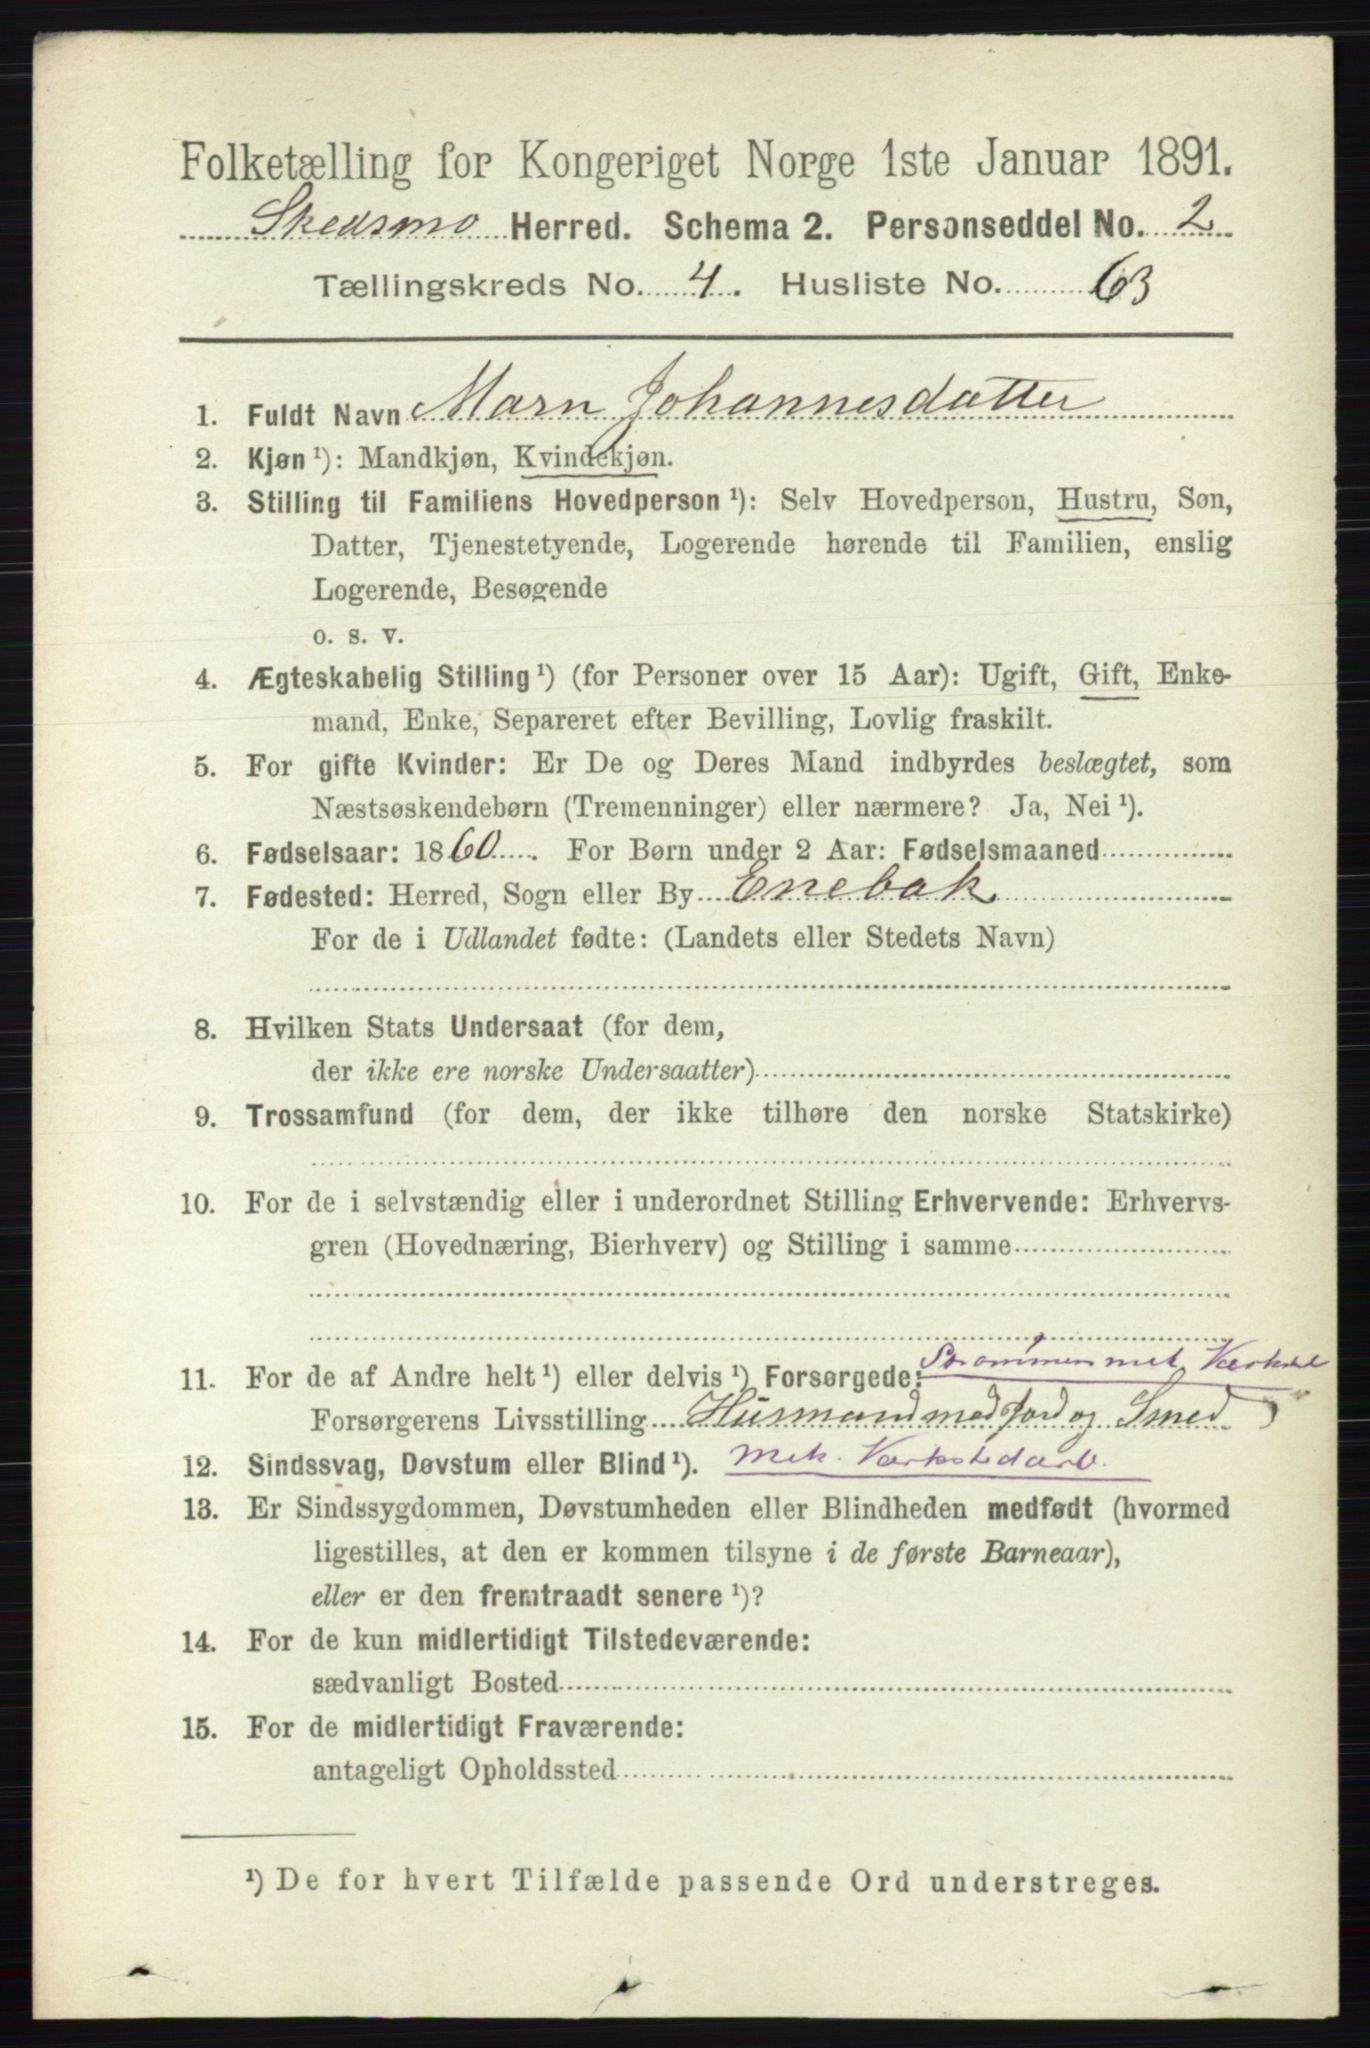 Folketælling for Kongeriget Norge 1ste Januar 1891.
Skedsmo Herred. Schema 2. Personseddel No. 2
Tællingskreds No. 4. Husliste No. 63
1. Fuldt Navn Marn Johannesdatter
2. Kjøn ¹): Mandkjøn, Kvindekjøn.
3. Stilling til Familiens Hovedperson ¹): Selv Hovedperson, Hustru, Søn,
Datter, Tjenestetyende, Logerende hørende til Familien, enslig
Logerende, Besøgende
o. s. v.
4. Ægteskabelig Stilling ¹) (for Personer over 15 Aar): Ugift, Gift, Enke-
mand, Enke, Separeret efter Bevilling, Lovlig fraskilt.
5. For gifte Kvinder: Er De og Deres Mand indbyrdes beslægtet, som
Næstsøskendebørn (Tremenninger) eller nærmere? Ja, Nei ¹).
6. Fødselsaar: 1860. For Børn under 2 Aar: Fødselsmaaned
7. Fødested: Herred, Sogn eller By Enebak
For de i Udlandet fødte: (Landets eller Stedets Navn)
8. Hvilken Stats Undersaat (for dem,
der ikke ere norske Undersaatter)
9. Trossamfund (for dem, der ikke tilhøre den norske Statskirke)
10. For de i selvstændig eller i underordnet Stilling Erhvervende: Erhvervs-
gren (Hovednæring, Bierhverv) og Stilling i samme
Strømmen mek Værksted
11. For de af Andre helt ¹) eller delvis ¹) Forsørgede:
Forsørgerens Livsstilling Husmand med Jord og Smed
12. Sindssvag, Døvstum eller Blind ¹). Mek. Værkstedarb.
13. Er Sindssygdommen, Døvstumheden eller Blindheden medfødt (hvormed
ligestilles, at den er kommen tilsyne i de første Barneaar),
eller er den fremtraadt senere ¹)?
14. For de kun midlertidigt Tilstedeværende:
sædvanligt Bosted
15. For de midlertidigt Fraværende:
antageligt Opholdssted
¹) De for hvert Tilfælde passende Ord understreges.